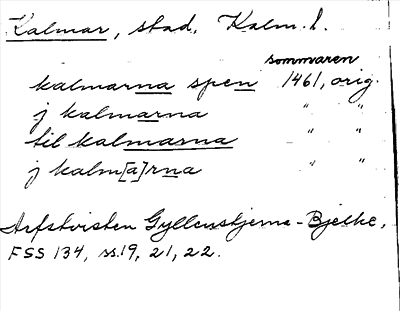 Kalmar, stad, Kalm. l.
sommaren
kalmarna spen 1461, orig.
j kalmarna " "
til kalmarna " "
j kalm[a]rna " "
Arfstvisten Gyllenstjerna-Bjelke,
FSS 134, ss.19, 21, 22.